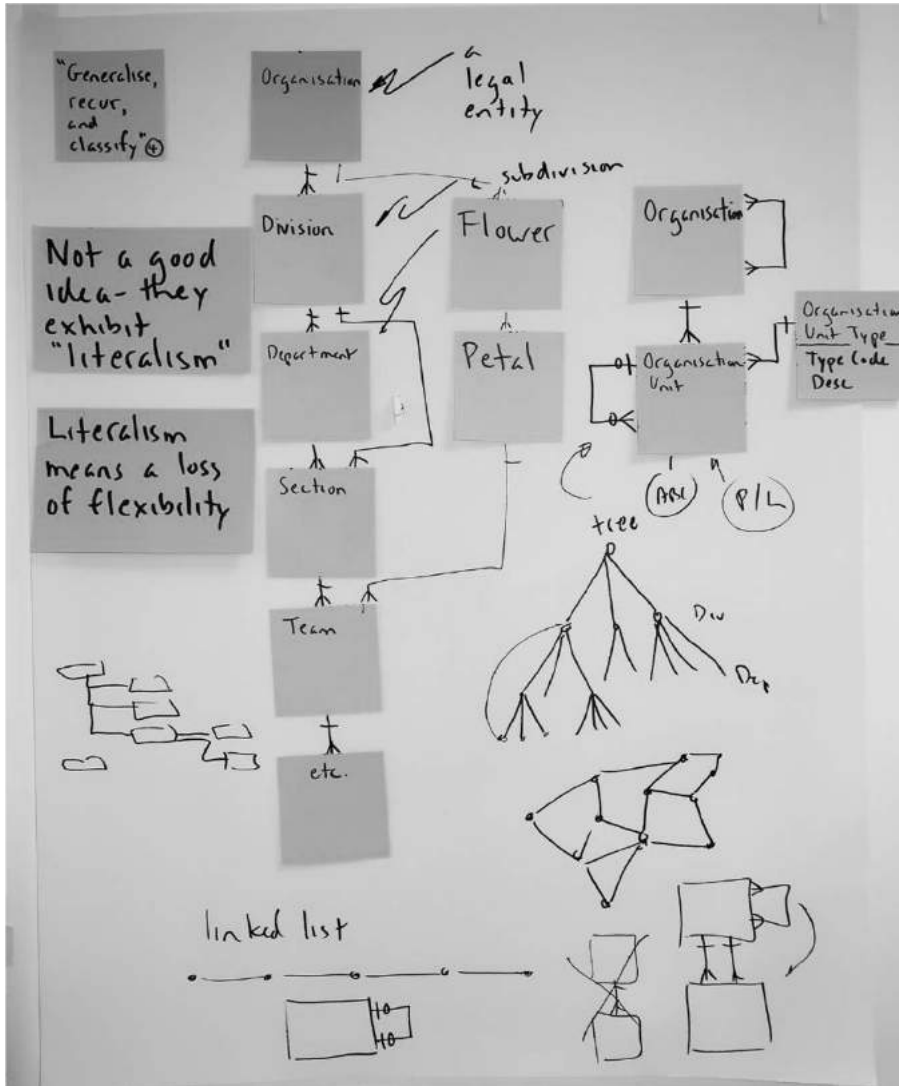 "Generalise,
recur,
and
classify" 4
Organisation
a
legal
entity
subdivision
Division
Flower
Organisation
Not a good
idea - they
exhibit
"literalism"
Department
Petal
Organisation
Unit
Organisation
Unit Type
Type Code
Desc
Literalism
means a loss
of flexibility
Section
P/L
tree
Team
Div
Dep
etc.
linked list